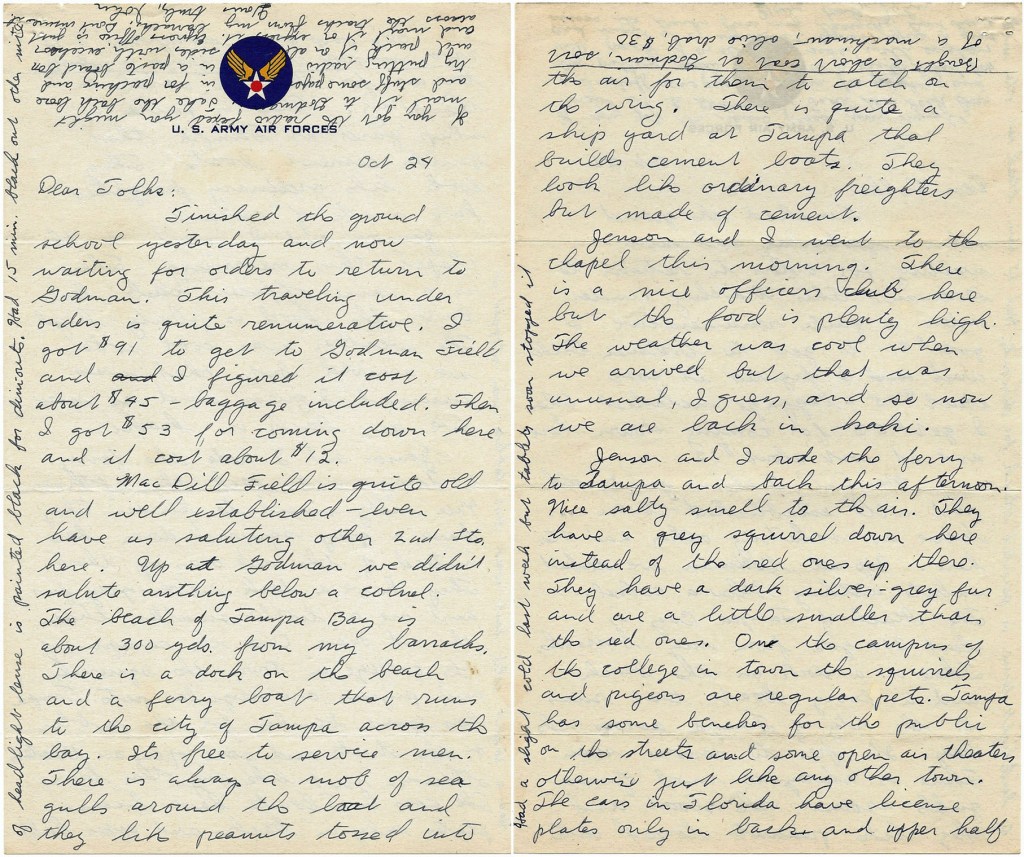 U. S. ARMY AIR FORCES
Oct 24
Dear Folks:
Finished the ground
school yesterday and now
waiting for orders to return to
Godman. This traveling under
orders is quite renumerative. I
got $91 to get to Godman Field
and and I figured it cost
about $45 - baggage included. Then
I got $53 for coming down here
and it cost about $12.
Mac Dill Field is quite old
and well established - even
have us saluting other 2nd Lts.
here. Up at Godman we didn't
salute anthing below a colnel.
The beach of Tampa Bay is
about 300 yds. from my barracks.
There is a dock on the beach
and a ferry boat that runs
to the city of Tampa across the
bay. Its free to service men.
There is alway a mob of sea
gulls around the boat and
they like peanuts tossed into
the air for them to catch on
the wing. There is quite a
ship yard at Tampa that
builds cement boats. They
look like ordinary freighters
but made of cement.
Jenson and I went to the
chapel this morning. There
is a nice officers club here
but the food is plenty high.
The weather was cool when
we arrived but that was
unusual, I guess, and so now
we are back in kaki.
Jenson and I rode the ferry
to Tampa and back this afternoon.
Nice salty smell to the air. They
have a grey squirrel down here
instead of the red ones up there.
They have a dark silver-grey fur
and are a little smaller than
the red ones. One the campus of
the college in town the squirrels
and pigeons are regular pets. Tampa
has some benches for the public
on the streets and some open air theaters
otherwise just like any other town.
The cars in Florida have license
plates only in back and upper half
of headlight lense is painted black for dimouts. Had 15 min. black out nite
Had a slight cold last week but tablets soon stopped it
Bought a short coat at Godman, sort
of a mackinaw, olive drab, $30
If you get the radio fixed you might
mail it to Godman. Take the back
and stuff some paper in for packing and
try putting radio in a paste board box
pack it on all sides with excelsior
and mail it or express it. Express office is just
across the tracks from my barracks. Dont insure
Yours truly, John